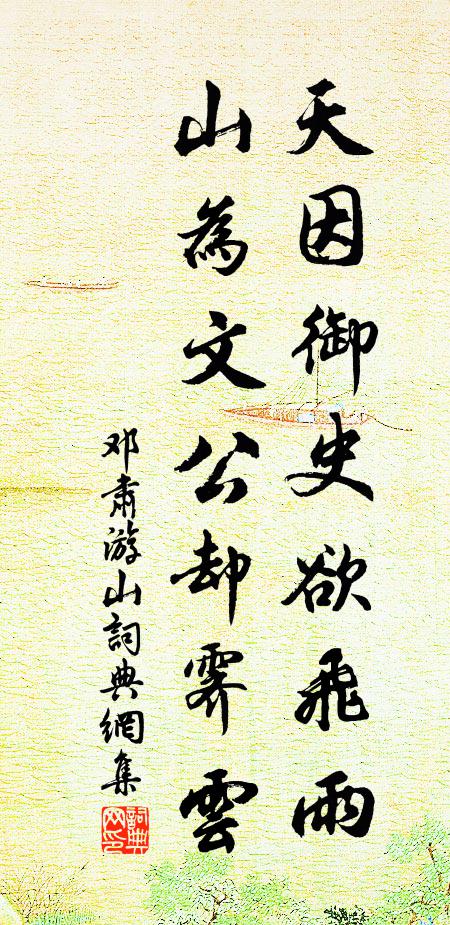 天因御史欲飛雨
山為文公却霽雲
邓肃游山詞典網集
詞典網印